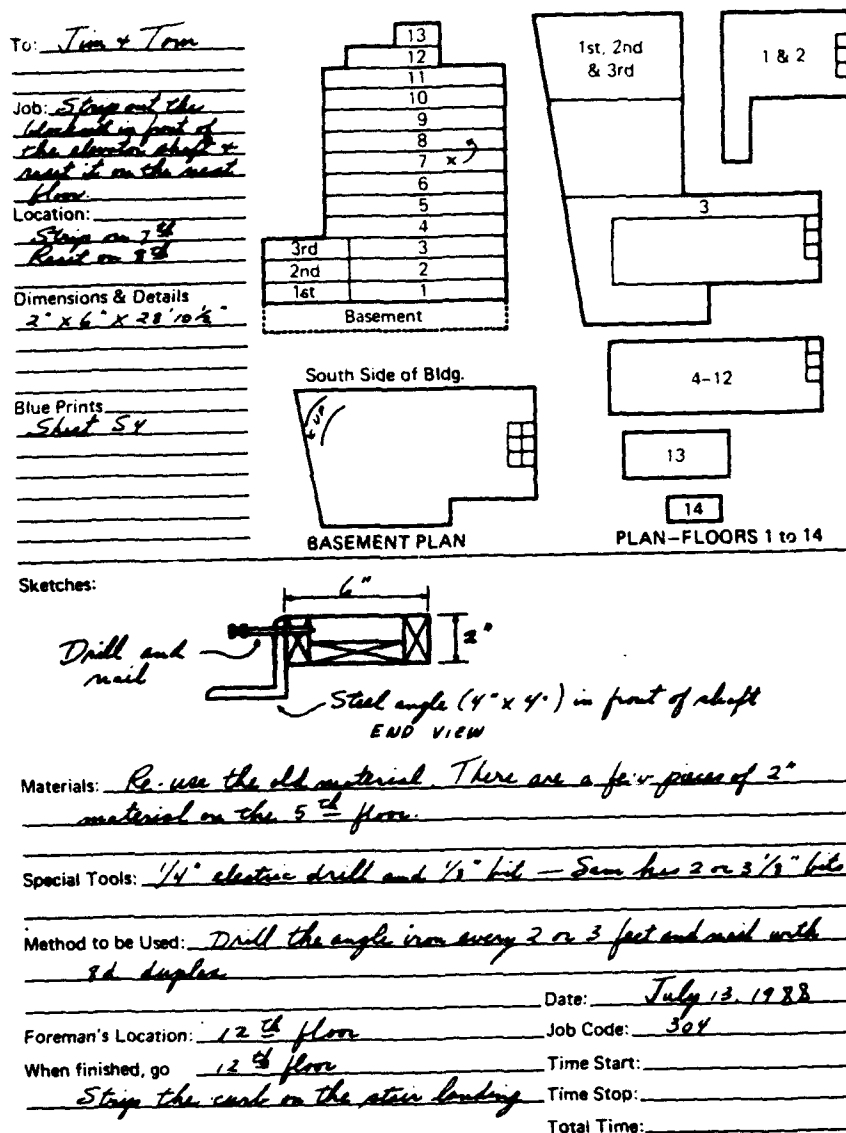 To: Jim & Tom
Job: Strip out the
blockout in front of
the elevator shaft &
reset it on the next
floor.
Location:
Strip on 7th
Reset on 8th
Dimensions & Details
2" x 6" x 28' 10 1/2"
Blue Prints
Sheet S4
13
12
11
10
9
8
7 x
6
5
4
3rd 3
2nd 2
1st 1
Basement
1st, 2nd
& 3rd
1 & 2
3
4-12
13
14
PLAN-FLOORS 1 to 14
South Side of Bldg.
UP
BASEMENT PLAN
Sketches:
6"
2"
Drill and
nail
Steel angle (4" x 4") in front of shaft
END VIEW
Materials: Re-use the old material. There are a few pieces of 2"
material on the 5th floor.
Special Tools: 1/4" electric drill and 1/8" bit — Sam has 2 or 3 1/8" bits
Method to be Used: Drill the angle iron every 2 or 3 feet and nail with
8d duplex
Date: July 13, 1988
Foreman's Location: 12th floor
Job Code: 304
When finished, go 12th floor
Time Start:
Strip the curb on the stair landing
Time Stop:
Total Time: